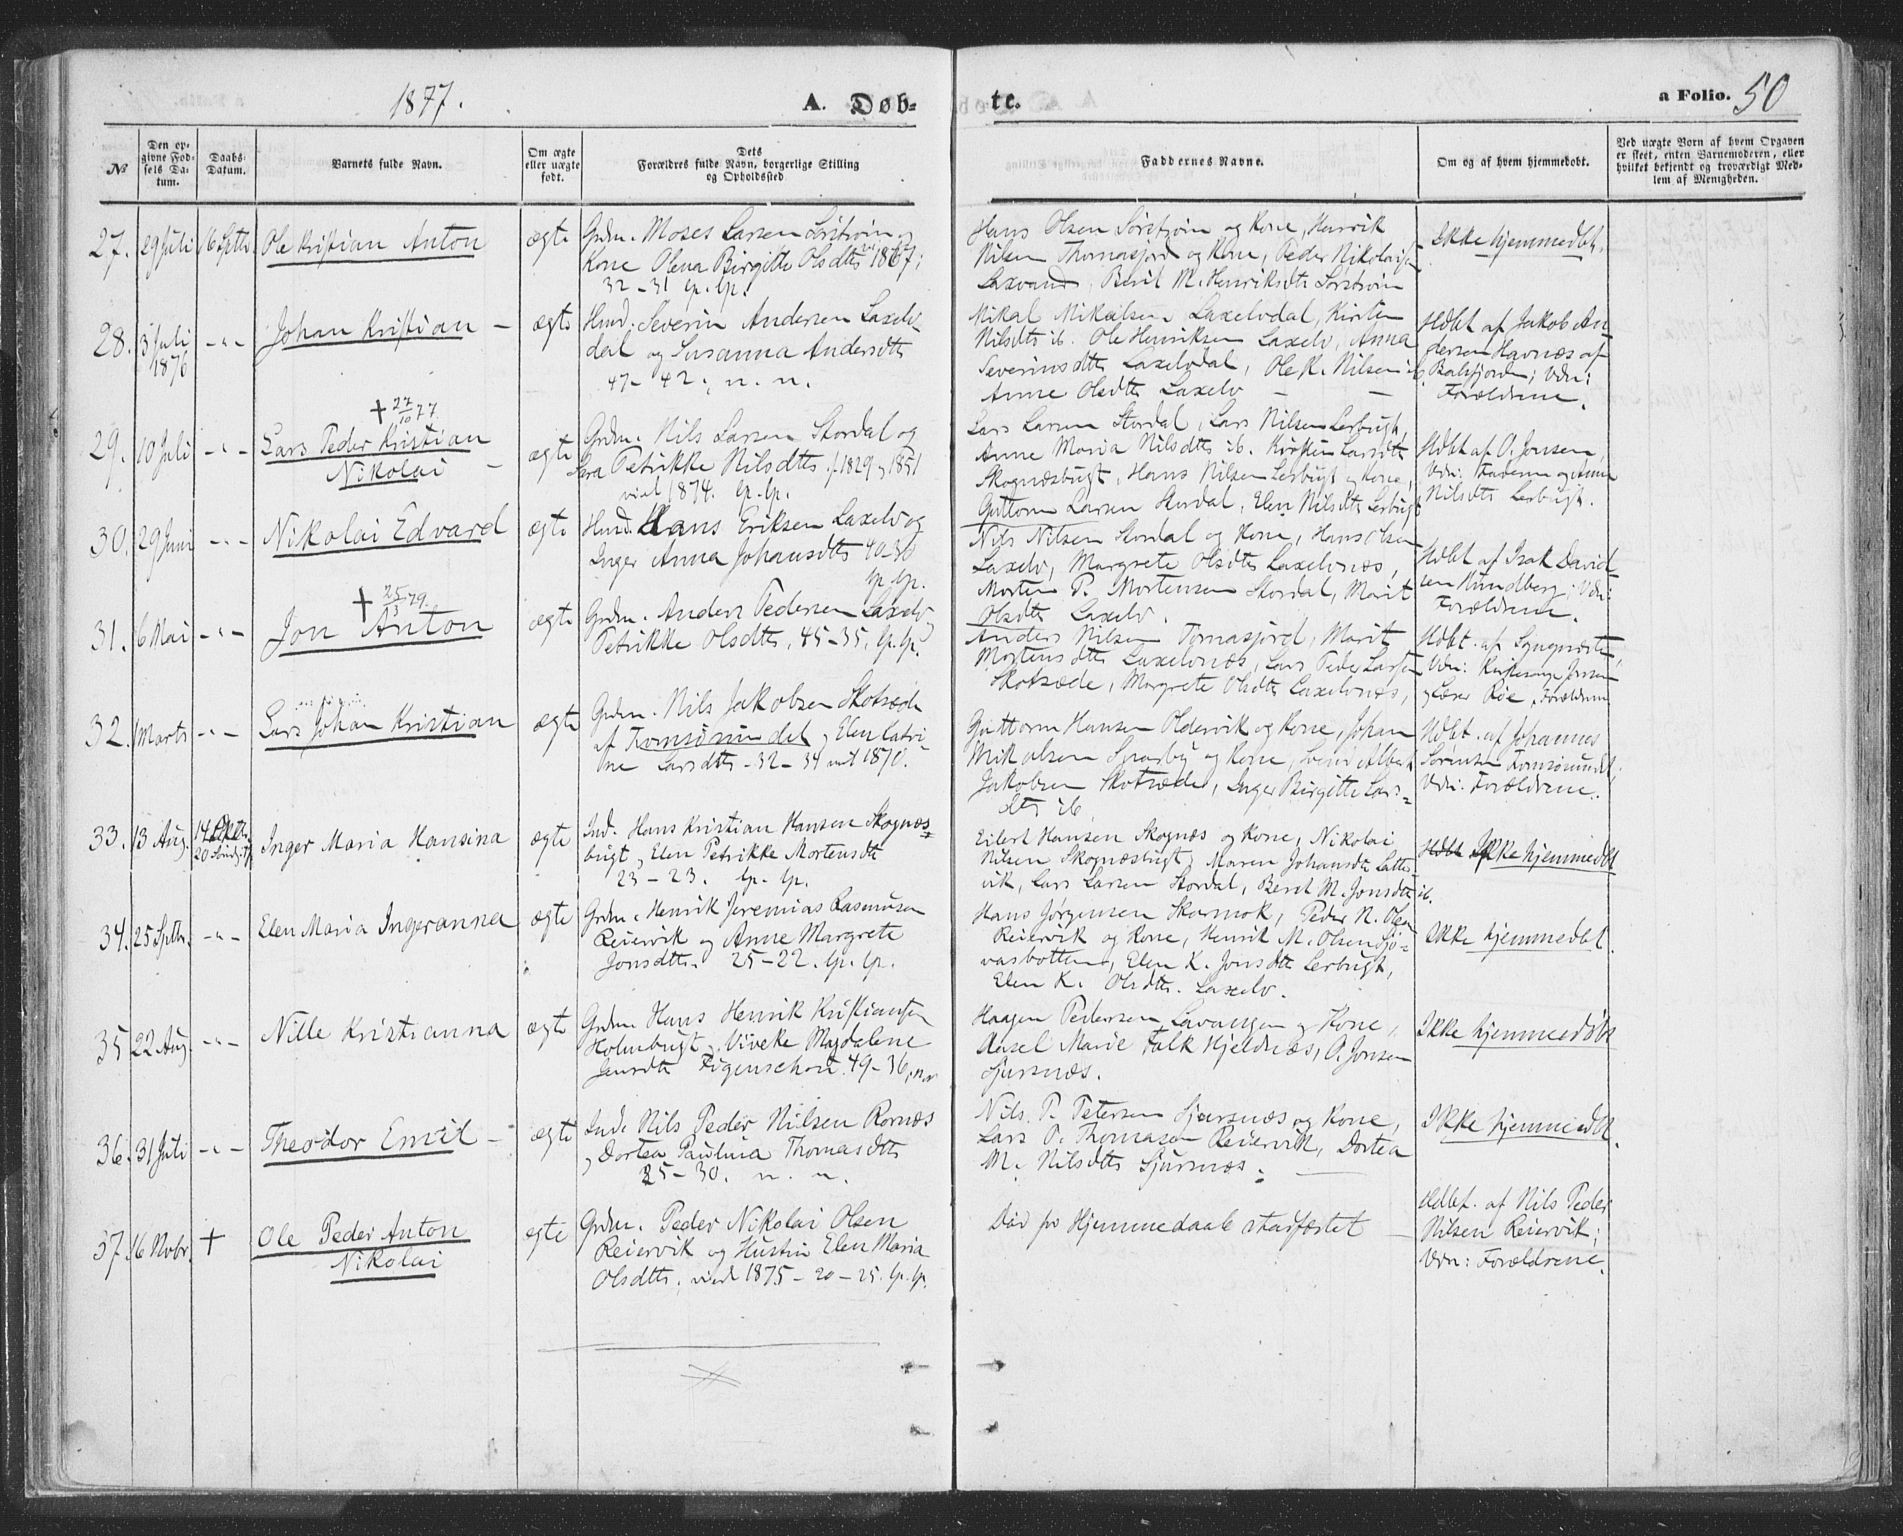 1877.
A. Døb-
te.
a Folio. 50
№
Den op-
givne Fød-
sels Da-
tum.
Daabs-
Datum.
Barnets fulde Navn.
Om ægte
eller uægte
født.
Dets
Forældres fulde Navn, borgerlige Stilling
og Opholdssted
Faddernes Navne.
Om og af hvem hjemmedøbt.
Ved uægte Børn af hvem Opgaven
er skeet, enten Barnemoderen, eller
hvilket bekjendt og troværdigt Med-
lem af Menigheden.
27. 29 Juli 16 Septb. Ole Kristian Anton ægte Grdm. Moses Larsen Sørstrøm og
Kone Olena Birgitte Olsdtr 1867;
32 – 31 lp. lp.
Hans Olsen Sørstrøm og Kone, Henrik
Nilsen Thomasjord og Kone, Peder Nikolaisen
Laxvand, Berit M. Henriksdtr Sørstrøm
Ikke hjemmedbt.
28. 3 Juli
1876 -"- Johan Kristian – ægte Hmd. Severin Andersen Laxelv-
dal og Susanna Andersdtr
47 – 42. n. n.
Mikal Mikalsen Laxelvdal, Kirsten
Nilsdtr ib. Ole Henriksen Laxelv, Anna
Severinsdtr Laxelvdal, Ole K. Nilsen ib.
Anne Olsdtr Laxelv – –
Hdbt af Jakob An-
dersen Havnæs af
Balsfjorden; Vdn:
Forældrene.
29. 10 Juli -"- † 27/10 77.
Lars Peder Kristian
Nikolai – ægte Grdm. Nils Larsen Stordal og
Petrikke Nilsdtr f. 1829 og 1851
viet 1874. lp. lp.
Lars Larsen Stordal, Lars Nilsen Lerbugt,
Anne Maria Nilsdtr ib. Kirsten Larsdtr
Skognæsbugt, Hans Nilsen Lerbugt og Kone,
Guttorm Larsen Stordal, Elen Nilsdtr Lerbugt
Hdbt af O. Jensen,
Vdn: Faderen og Anne
Nilsdtr Lerbugt.
30. 29 Juni -"- Nikolai Edvard ægte Hmd. Hans Eriksen Laxelv og
Inger Anna Johansdtr 40–36
lp. lp.
Nils Nilsen Stordal og Kone, Hans Olsen
Laxelv, Margrete Olsdtr Laxelvnæs,
Morten P. Mortensen Stordal, Marit
Olsdtr Laxelv.
Hdbt af Isak David-
sen Hundberg; Vdn:
Forældrene.
31. 6 Mai -"- † 25/3 79.
Jon Anton ægte Grdm. Anders Pedersen Laxelv og
Petrikke Olsdtr, 45–35, lp. lp.
Anders Nilsen Tomasjord, Marit
Mortensdtr Laxelvnæs, Lars Peder Larsen
Skotsæde, Margrete Olsdtr Laxelvnæs,
Hdbt. af Sognepræsten,
Vdn: Kirkesanger Jensen
og Lærer Røe, Forældrene
32. 1 Marts -"- Lars Johan Kristian ægte Grdm. Nils Jakobsen Skotsæde
af Tromsøsundet og Elen Catri-
ne Larsdtr – 32–34 viet 1870.
Guttorm Hansen Oldervik og Kone, Johan
Mikalsen Sparby og Kone, Albert
Jakobsen Skotsæde, Inger Birgitte Lars-
dtr ib
Hdbt. af Johannes
Sørensen Tromsøsundet.
Vdn: Forældrene.
33. 13 Aug. 14 Oktb. Inger Maria Hansina ægte Ind. Hans Kristian Hansen Skognæs-
bugt og Elen Petrikke Mortensdtr
23 – 23. lp. lp.
Eilert Hansen Skognæs og Kone, Nikolai
Nilsen Skognæsbugt, Maren Johansdtr Latter-
vik, Lars Larsen Stordal, Berit M. Jonsdtr ib.
Ikke hjemmedbt
34. 25 Septb. -"- Elen Maria Ingeranna ægte Grdm. Henrik Jeremias Rasmusen
Reiervik og Anne Margrete
Jonsdtr. 25–22. lp. lp.
Hans Jørgensen Skarmok, Peder N. Olsen
Reiervik og Kone, Henrik M. Olsen Sjø-
vasbotten, Elen K. Jonsdtr Lerbugt,
Elen K. Olsdtr. Laxelv.
Ikke hjemmedbt.
35 22 Aug. -"- Nille Kristianna ægte Grdm. Hans Henrik Kristiansen
Holmbugt, Viveke Magdalene
Jensdtr Figenschou. 49–36, nor
Haagen Pedersen Lavangen og Kone,
Axel Marie Falk Hjeldnæs, O. Jensen
Sjursnæs.
Ikke hjemmedøbt
36. 31 Juli -"- Theodor Emil – ægte Ind. Nils Peder Nilsen Rornæs
og Dortea Paulina Thomasdtr
35–30. n. n.
Nils P. Petersen Sjursnæs og Kone,
Lars O. Thomasen Reiervik, Dortea
M. Nilsdtr Sjursnæs.
Ikke hjemmedbt.
37. 16 Novbr. † Ole Peder Anton
Nikolai ægte Grdm. Peder Nikolai Olsen
Reiervik og Hustru Elen Maria
Olsdtr; viet 1875 – 20–25. lp. lp.
Død før Hjemmedaab stadfæstet –
Hdbt. af Nils Peder
Nilsen Reiervik;
Vdn: Forældrene.